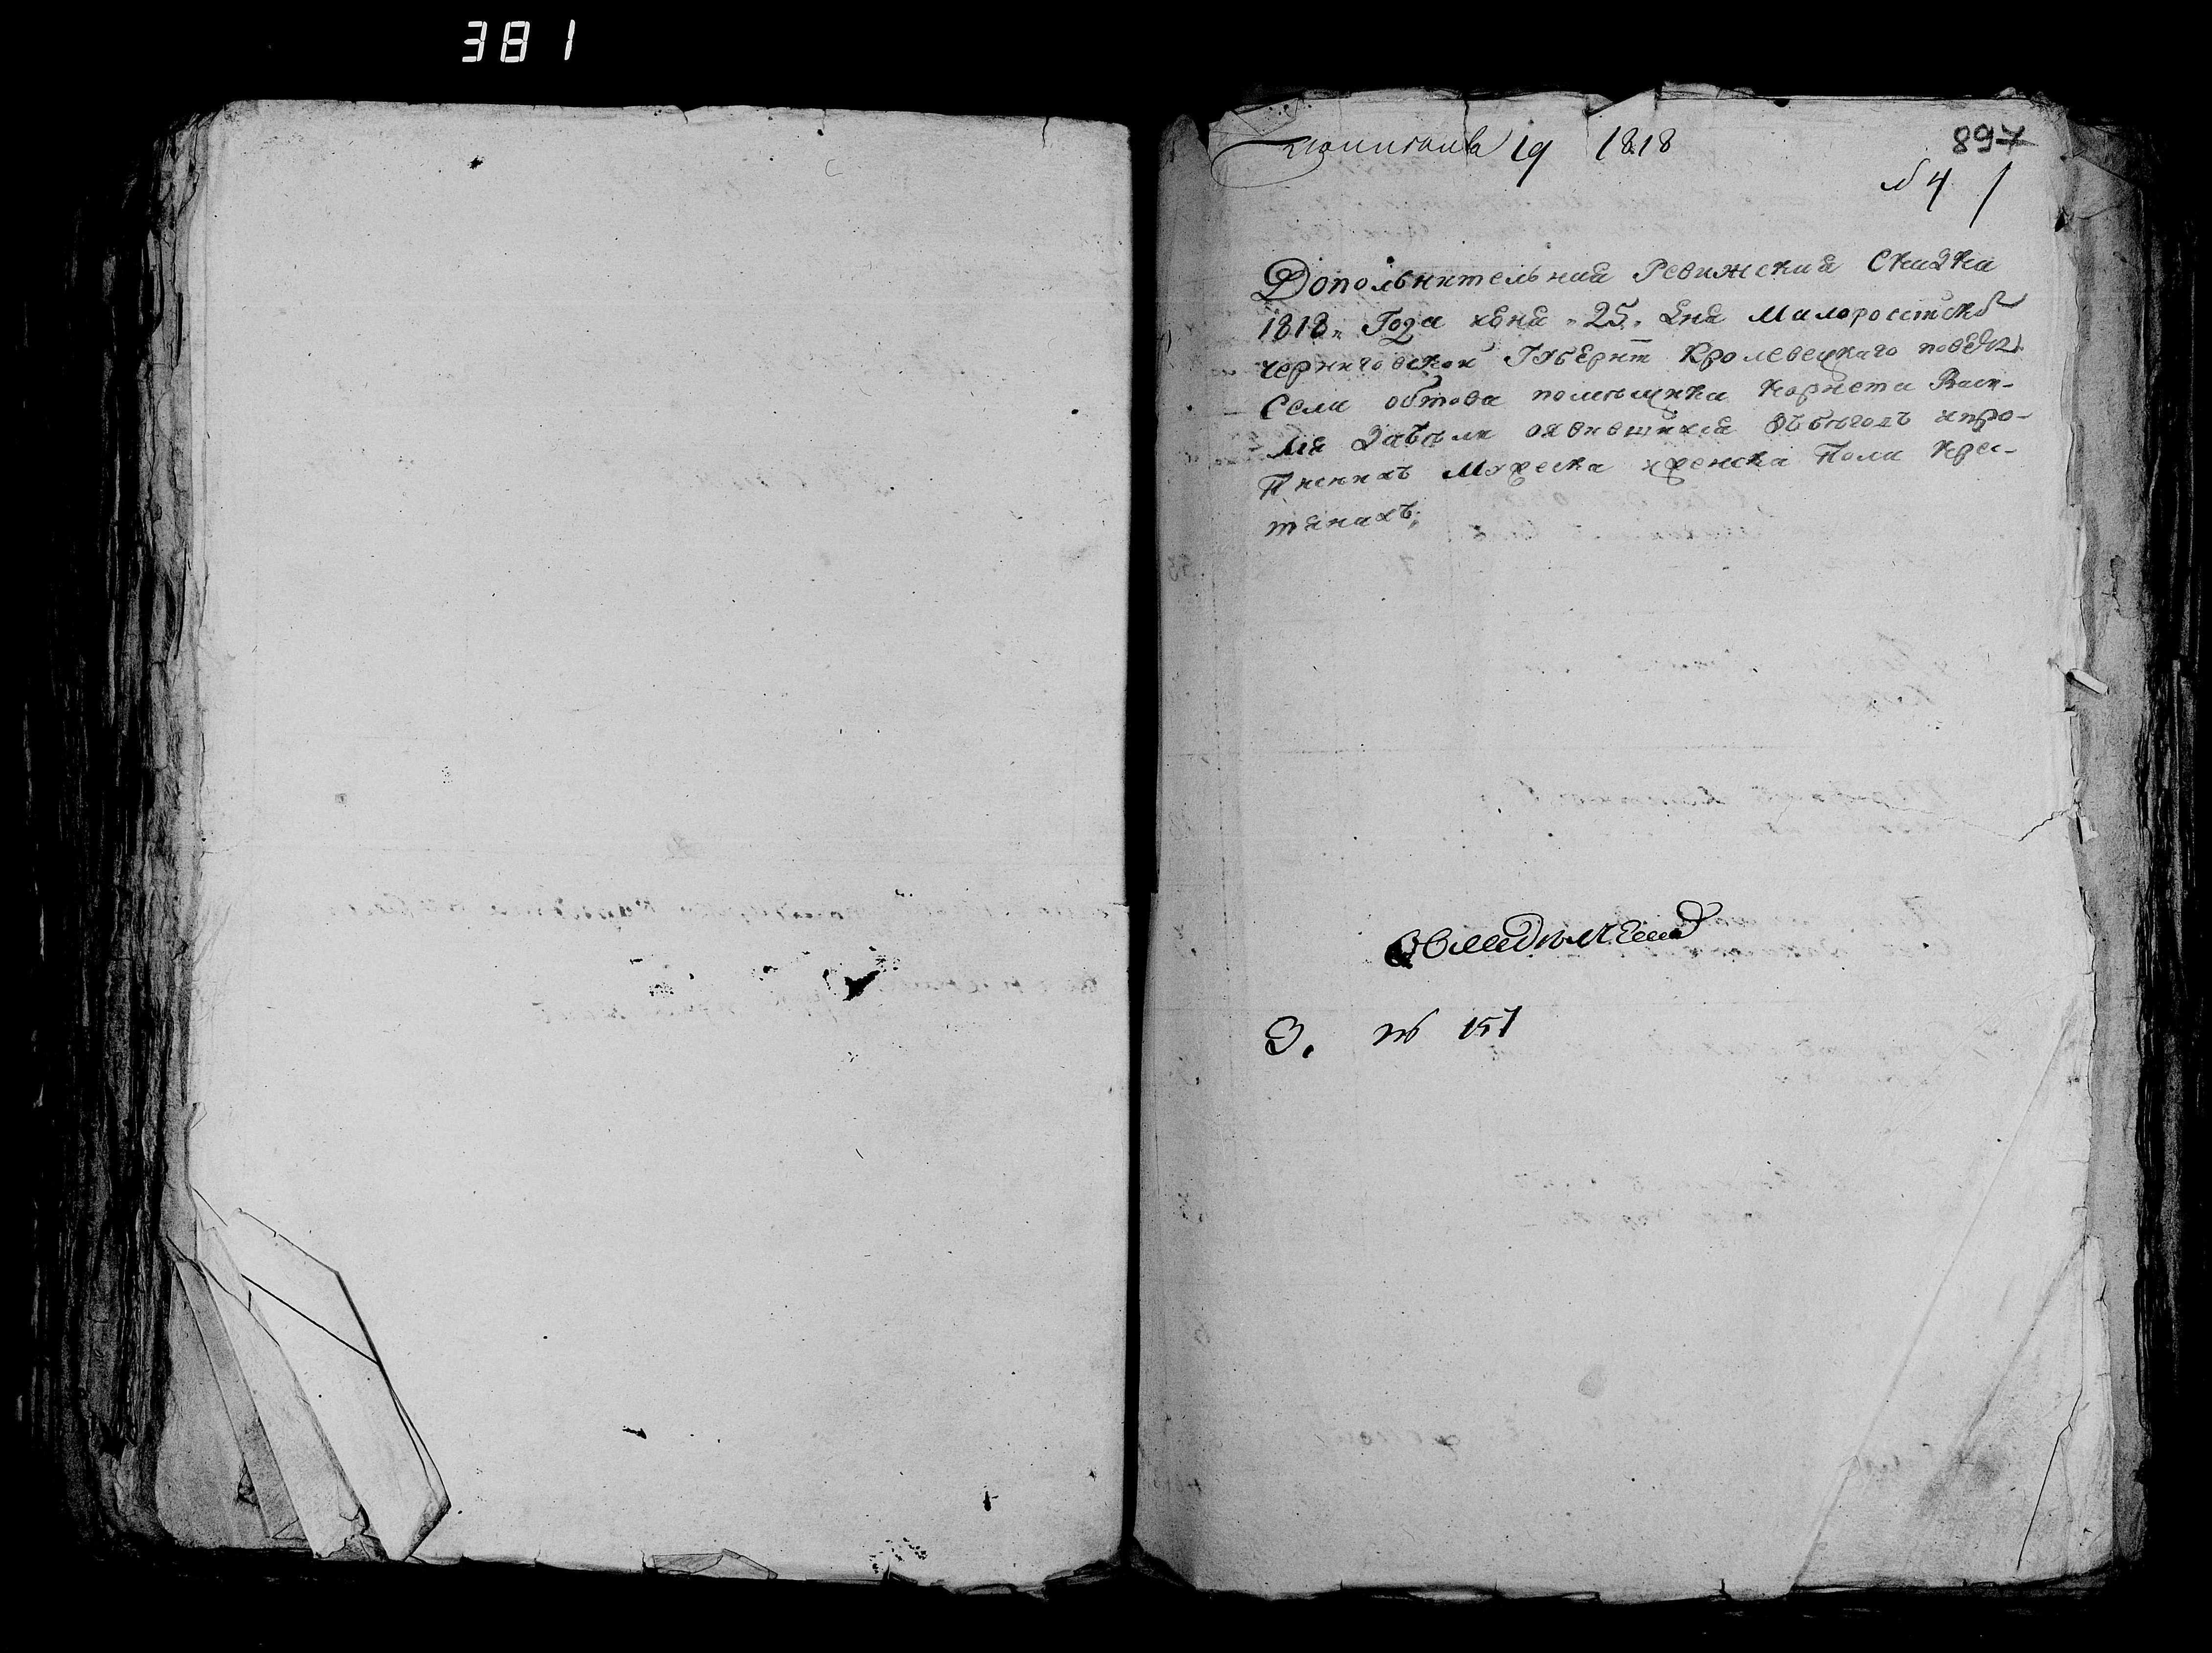 381
19 1818
897
N 4 /
Дополънителная Ревижская Сказка
1818. Года июня 25. дня Малоросійской
черниговской Губерніи Кролевецкаго повета
Села обтова помещика Корнета Васи-
лия оявившихся и про-
писних Мужеска и женска Пола крес-
тянахъ.
3. № 151